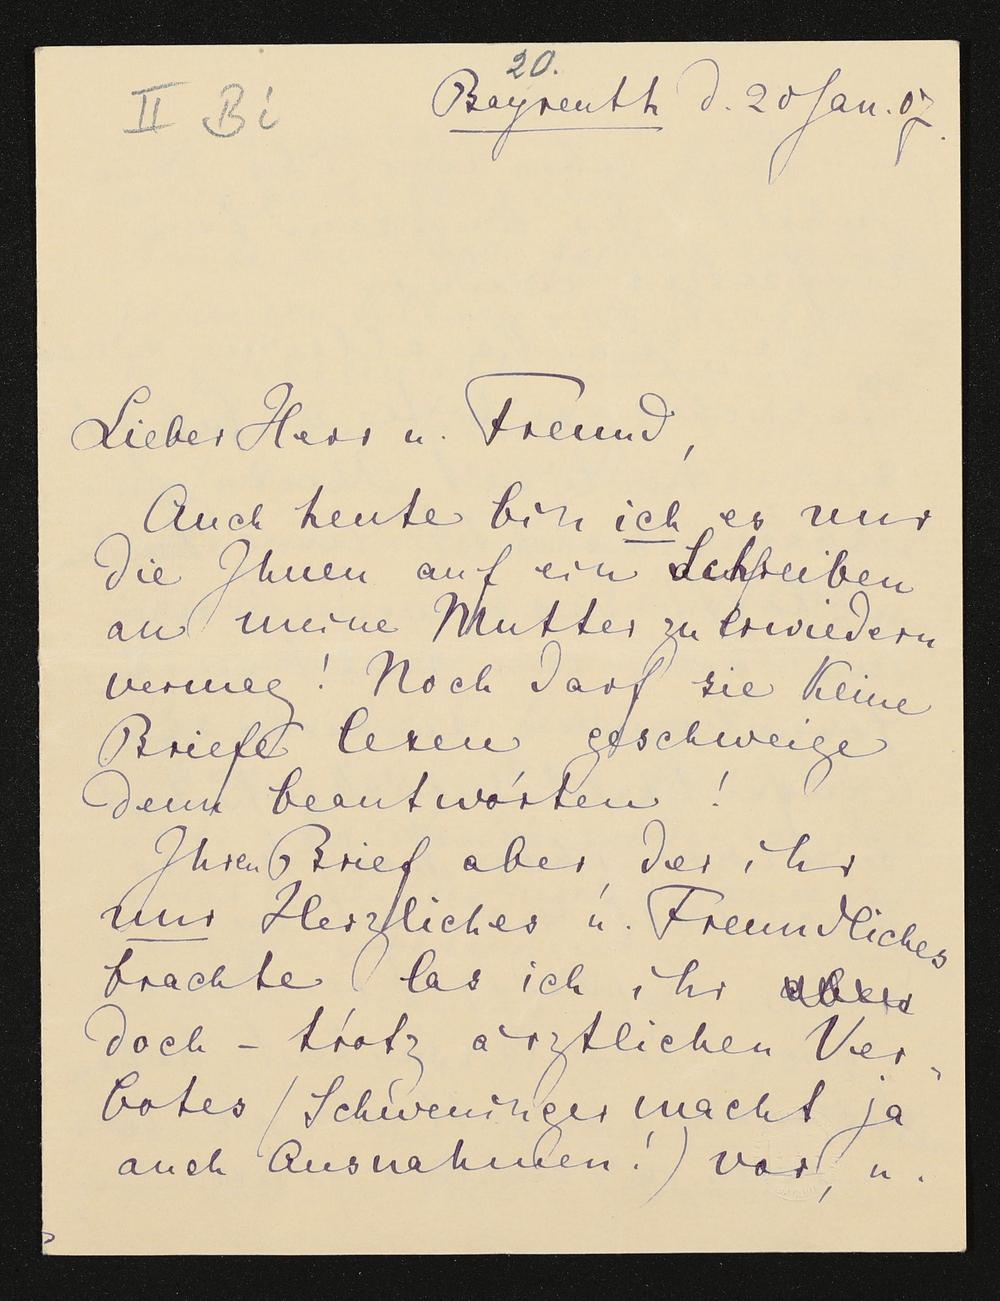 20.
II Bi
Bayreuth d. 20 Jan. 07.
Lieber Herr u. Freund,
Auch heute bin ich es nur
die Ihnen auf ein Schreiben
an meine Mutter zu erwiedern
vermag! Noch darf sie keine
Briefe lesen geschweige
denn beantworten!
Ihren Brief aber, der ihr
nur Herzliches u. Freundliches
brachte las ich ihr aber
doch – trotz ärztlichen Ver-
botes (Schweninger macht ja
auch Ausnahmen!) vor, u.